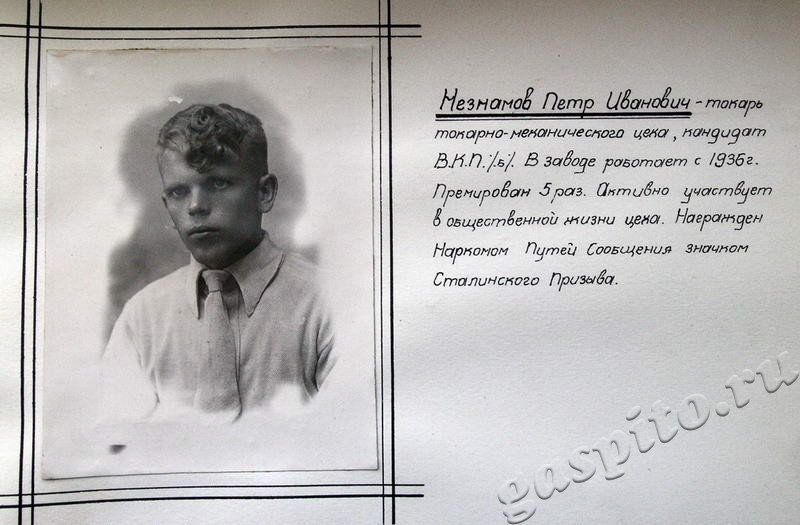 Незнамов Петр Иванович - токарь
токарно-механического цека, кандидат
В.К.П./.б/. В заводе работает с 1936г.
Премирован 5 раз. Активно участвует
в общественной жизни цека. Награжден
Наркомом Путей Сообщения значком
Сталинского Призыва.
gaspito.ru